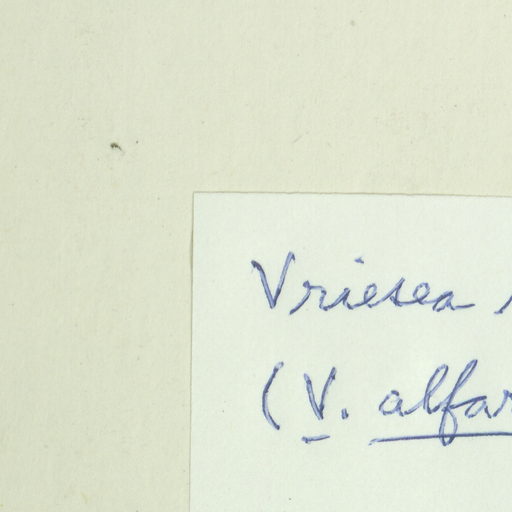 Vriesea
(V. alfar